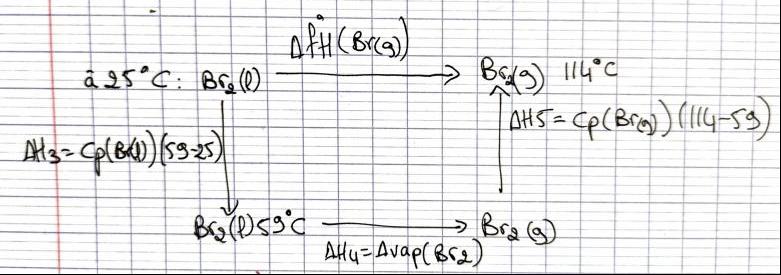 ΔfH°(Br(g))
à 25°C : Br₂(l) → Br₂(g) 114°C
ΔH5 = Cp(Br(g))(114-59)
ΔH₃ = Cp(Br(l))(59-25)
Br₂(l) 59°C → Br₂(g)
ΔH₄ = Δvap(Br₂)